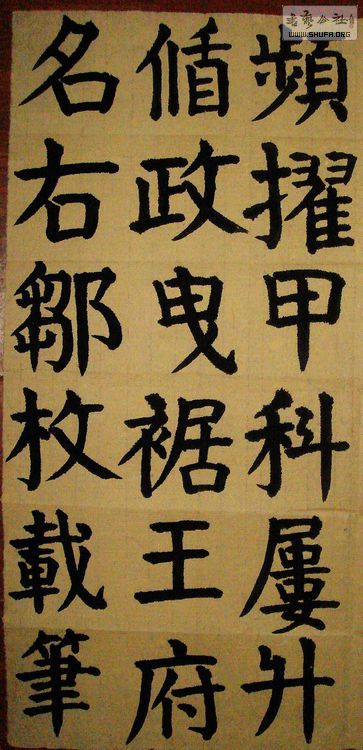 頻擢甲科屢升
偱政曳裾王府
名右鄒枚載筆
書藝公社
WWW.SHUFA.ORG